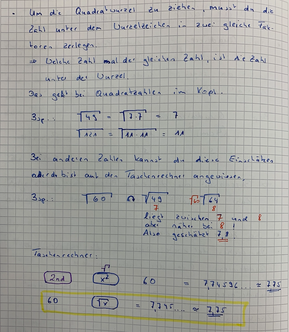 • Um die Quadratwurzel zu ziehen, musst du die
Zahl unter dem Wurzelzeichen in zwei gleiche Fak-
toren zerlegen.
⇒ Welche Zahl mal der gleichen Zahl, ist die Zahl
unter der Wurzel.
Das geht bei Quadratzahlen im Kopf.
Bsp.: √49 = √7·7 = 7
√121 = √11·11 = 11
Bei anderen Zahlen kannst du diese Einschätzen
oder bist auf den Taschenrechner angewiesen.
Bsp.: √60 √49 √64
7 8
liegt zwischen 7 und 8
aber näher bei 8!
Also geschätzt 7,8
Taschenrechner:
√
2nd x² 60 = 7,74596... ≈ 7,75
60 √x = 7,745... ≈ 7,75